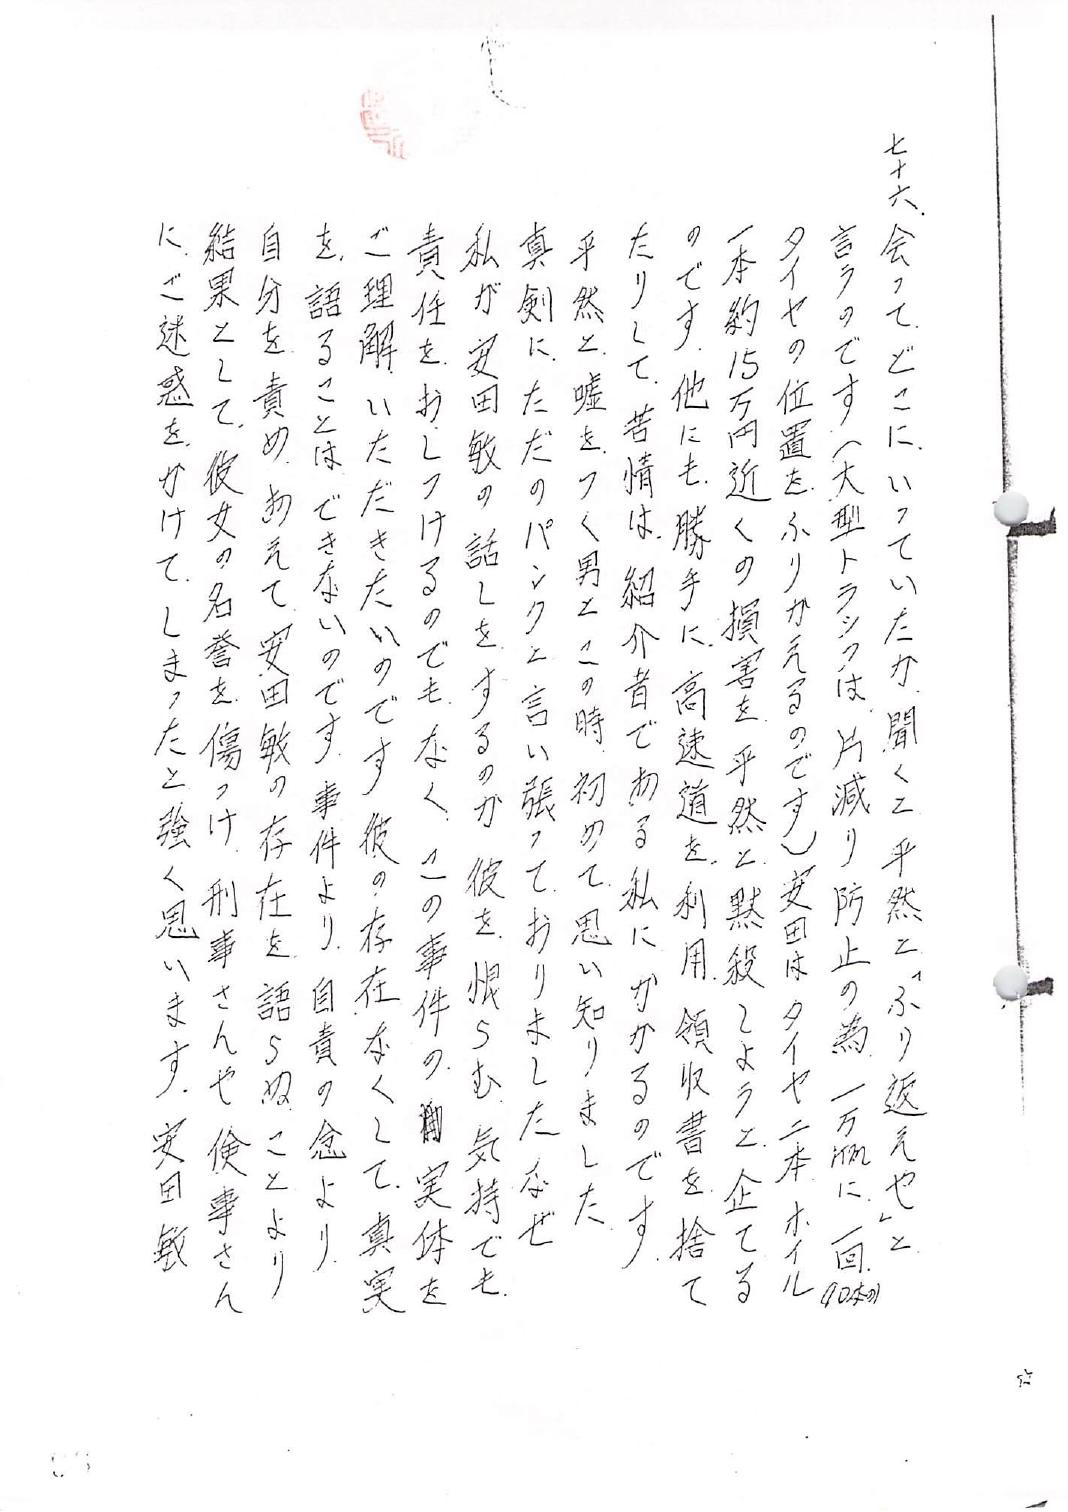 七十六、会って、どこに、いっていたか、聞くと平然と、「ふり返えや」と
言うのです、(大型トラックは、片減り防止の為、一万㎞に、一回、(10本の)
タイヤの位置を、ふりかえるのです)安田はタイヤ二本ホイル
一本約15万円近くの損害を、平然と、黙殺しようと、企てる
のです、他にも、勝手に、高速道を、利用、領収書を、捨て
たりして、苦情は、紹介者である私にかかるのです、
平然と、嘘をつく男とこの時、初めて、思い知りました
真剣に、ただのパンクと言い張って、おりましたなぜ
私が安田敏の話しをするのか彼を、恨らむ気持でも、
責任を、おしつけるのでもなく、この事件の、実体を
ご理解、いただきたいのです彼の、存在なくして、真実
を、語ることは、できないのです、事件より、自責の念より、
自分を、責め、あえて、安田敏の存在を語らぬことより
結果として、彼女の名誉を、傷つけ、刑事さんや倹事さん
に、ご迷惑を、かけて、しまったと強く思います、安田敏